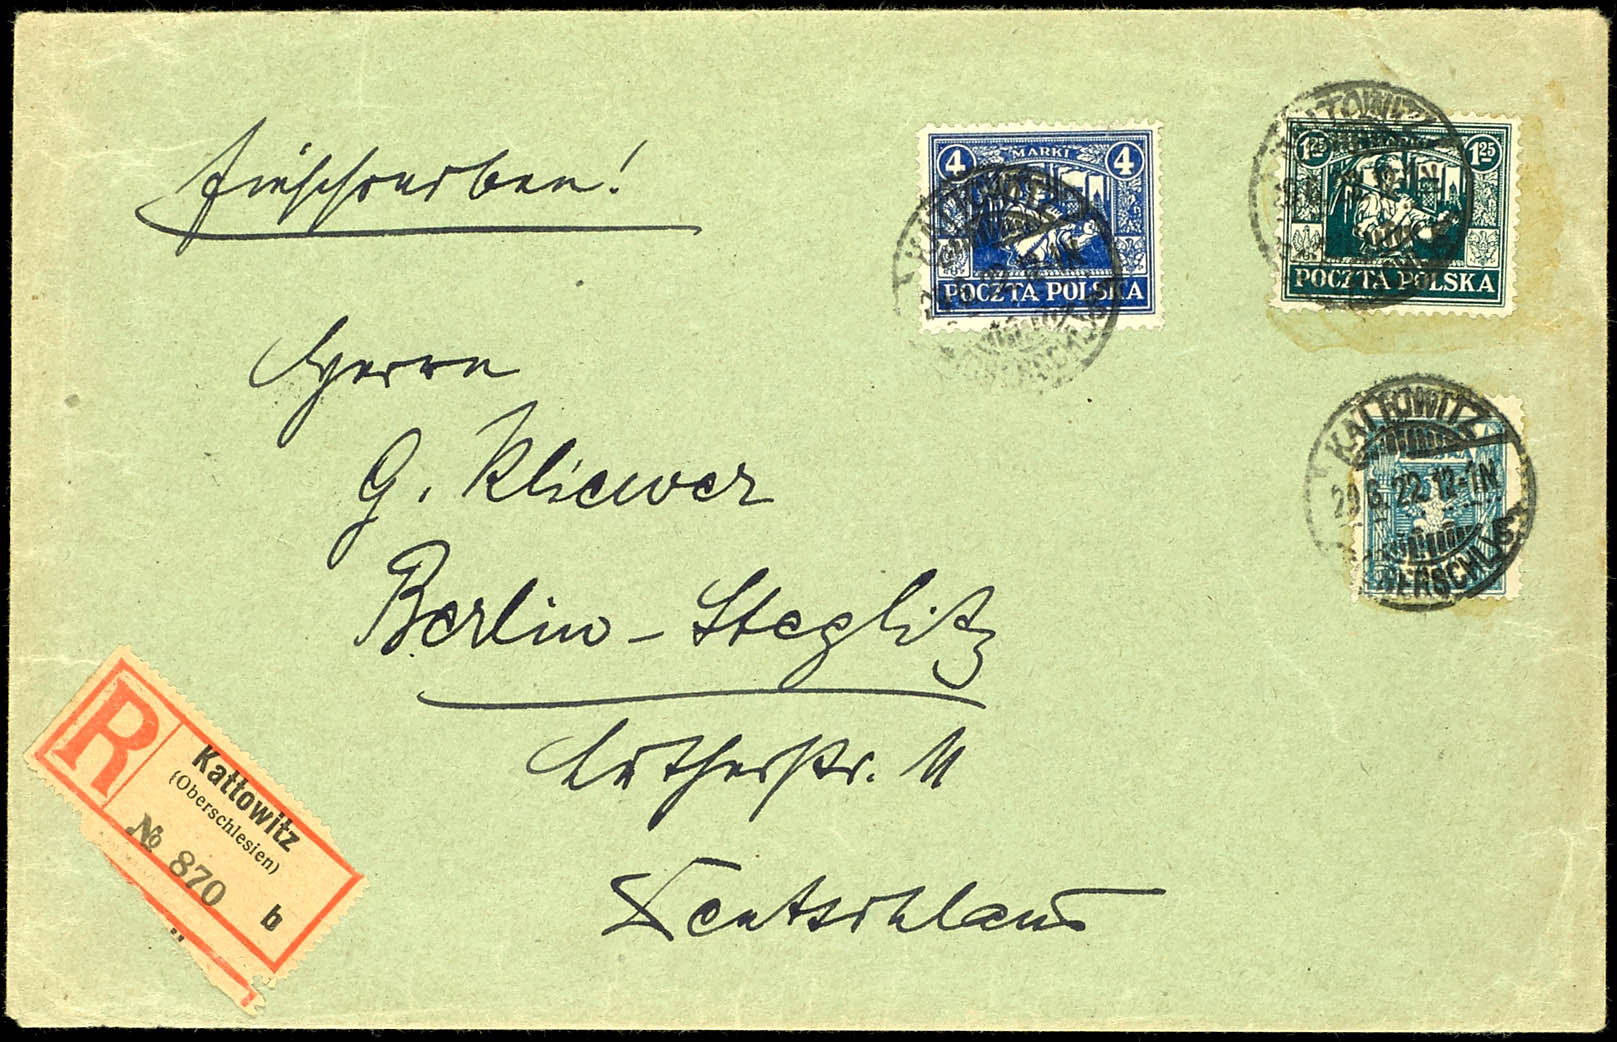 Einschreiben!
4 MARKI 4
POCZTA POLSKA
KATTOWITZ
1 25 1 25
POCZTA POLSKA
KATTOWITZ
Herrn
G. Kliewer
KATTOWITZ
29.6.22.12-1N
OBERSCHL
Berlin-Steglitz
Lutherstr. 11
Deutschland
R
Kattowitz
(Oberschlesien)
№ 870
b